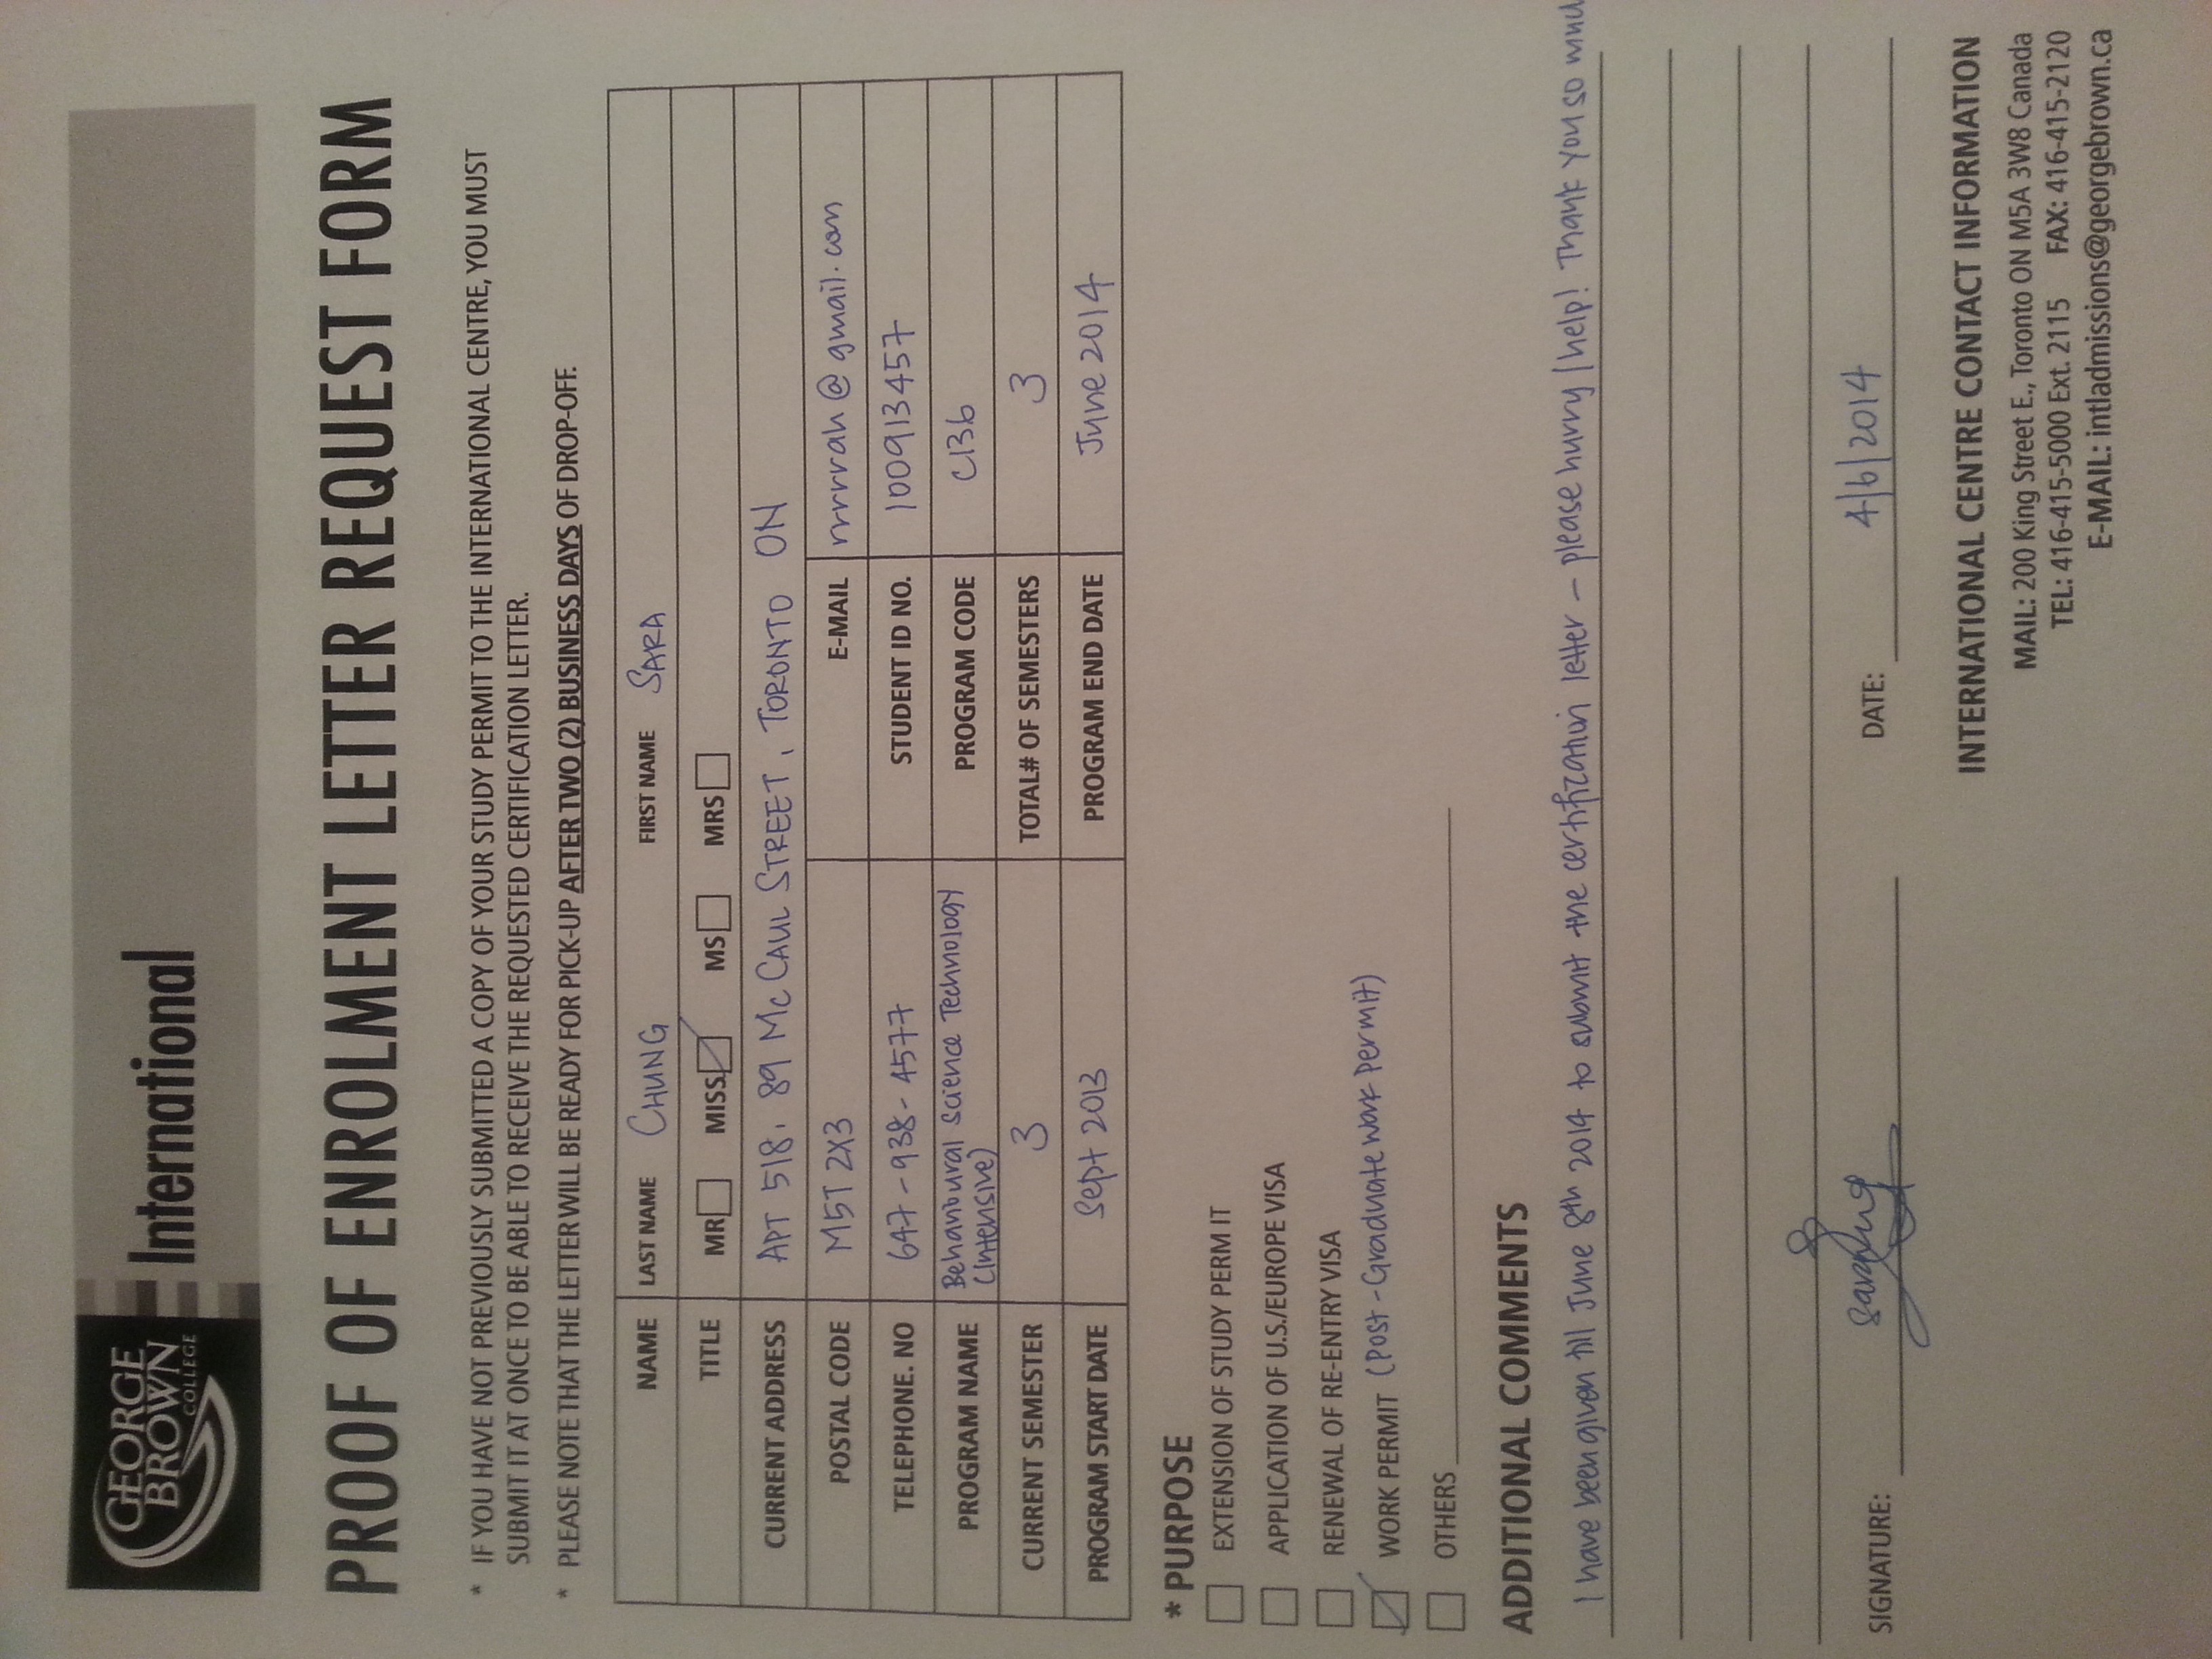 GEORGE
BROWN
COLLEGE
International
PROOF OF ENROLMENT LETTER REQUEST FORM
* IF YOU HAVE NOT PREVIOUSLY SUBMITTED A COPY OF YOUR STUDY PERMIT TO THE INTERNATIONAL CENTRE, YOU MUST
SUBMIT IT AT ONCE TO BE ABLE TO RECEIVE THE REQUESTED CERTIFICATION LETTER.
* PLEASE NOTE THAT THE LETTER WILL BE READY FOR PICK-UP AFTER TWO (2) BUSINESS DAYS OF DROP-OFF.
NAME LAST NAME CHUNG FIRST NAME SARA
TITLE MR MISS MS MRS
CURRENT ADDRESS APT 518, 89 MC CAUL STREET, TORONTO ON
POSTAL CODE M5T 2X3 E-MAIL rrrrrah@gmail.com
TELEPHONE. NO 647-938-4577 STUDENT ID NO. 100913457
PROGRAM NAME Behavioural Science Technology
(Intensive) PROGRAM CODE C136
CURRENT SEMESTER 3 TOTAL# OF SEMESTERS 3
PROGRAM START DATE Sept 2013 PROGRAM END DATE June 2014
* PURPOSE
EXTENSION OF STUDY PERM IT
APPLICATION OF U.S./EUROPE VISA
RENEWAL OF RE-ENTRY VISA
WORK PERMIT (Post-Graduate Work Permit)
OTHERS
ADDITIONAL COMMENTS
I have been given till June 8th 2014 to submit the certification letter - please hurry/help! Thank you so much
SIGNATURE: DATE: 4/6/2014
INTERNATIONAL CENTRE CONTACT INFORMATION
MAIL: 200 King Street E., Toronto ON M5A 3W8 Canada
TEL: 416-415-5000 Ext. 2115 FAX: 416-415-2120
E-MAIL: intladmissions@georgebrown.ca